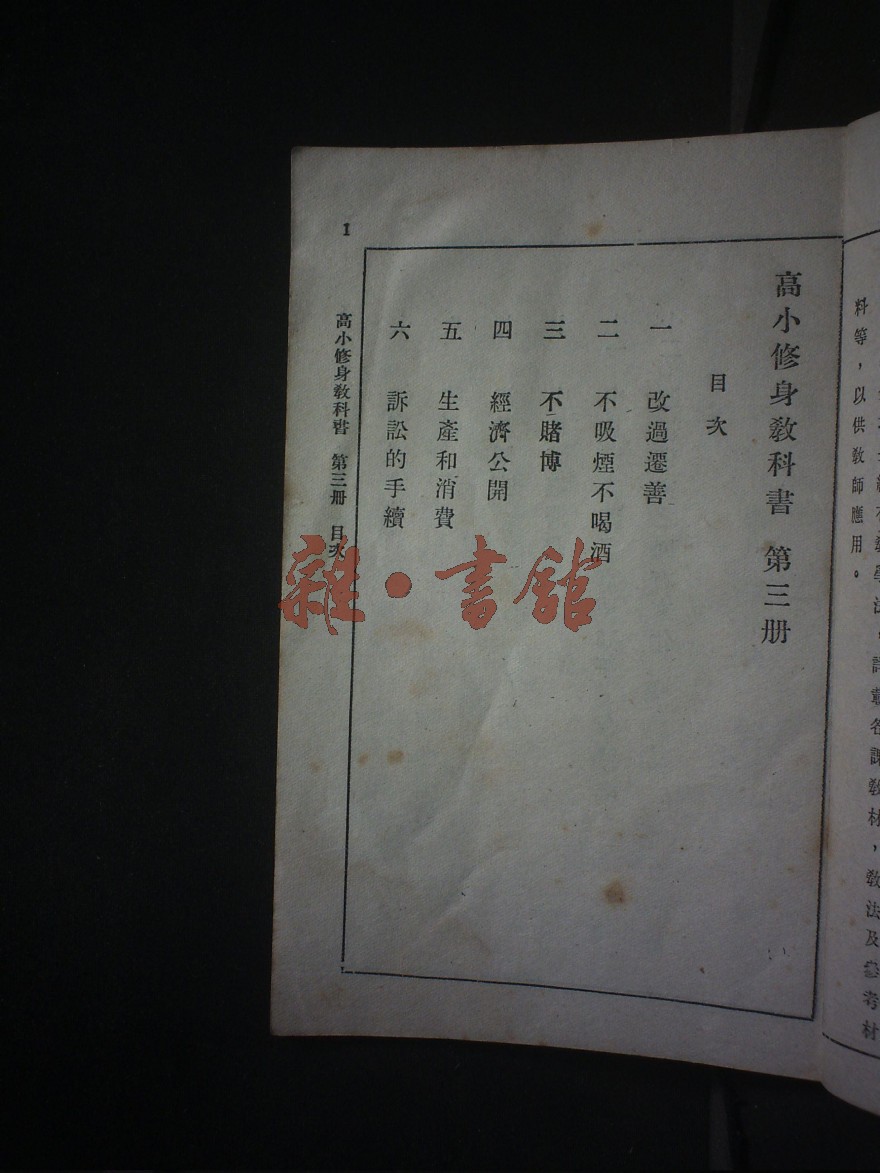 料等，以供教師應用。
載各課教材，教法及參考材
高小修身教科書 第三册
目次
一 改過遷善
二 不吸煙不喝酒
三 不賭博
四 經濟公開
五 生產和消費
六 訴訟的手續
高小修身教科書 第三册 目次
1
雜·書館